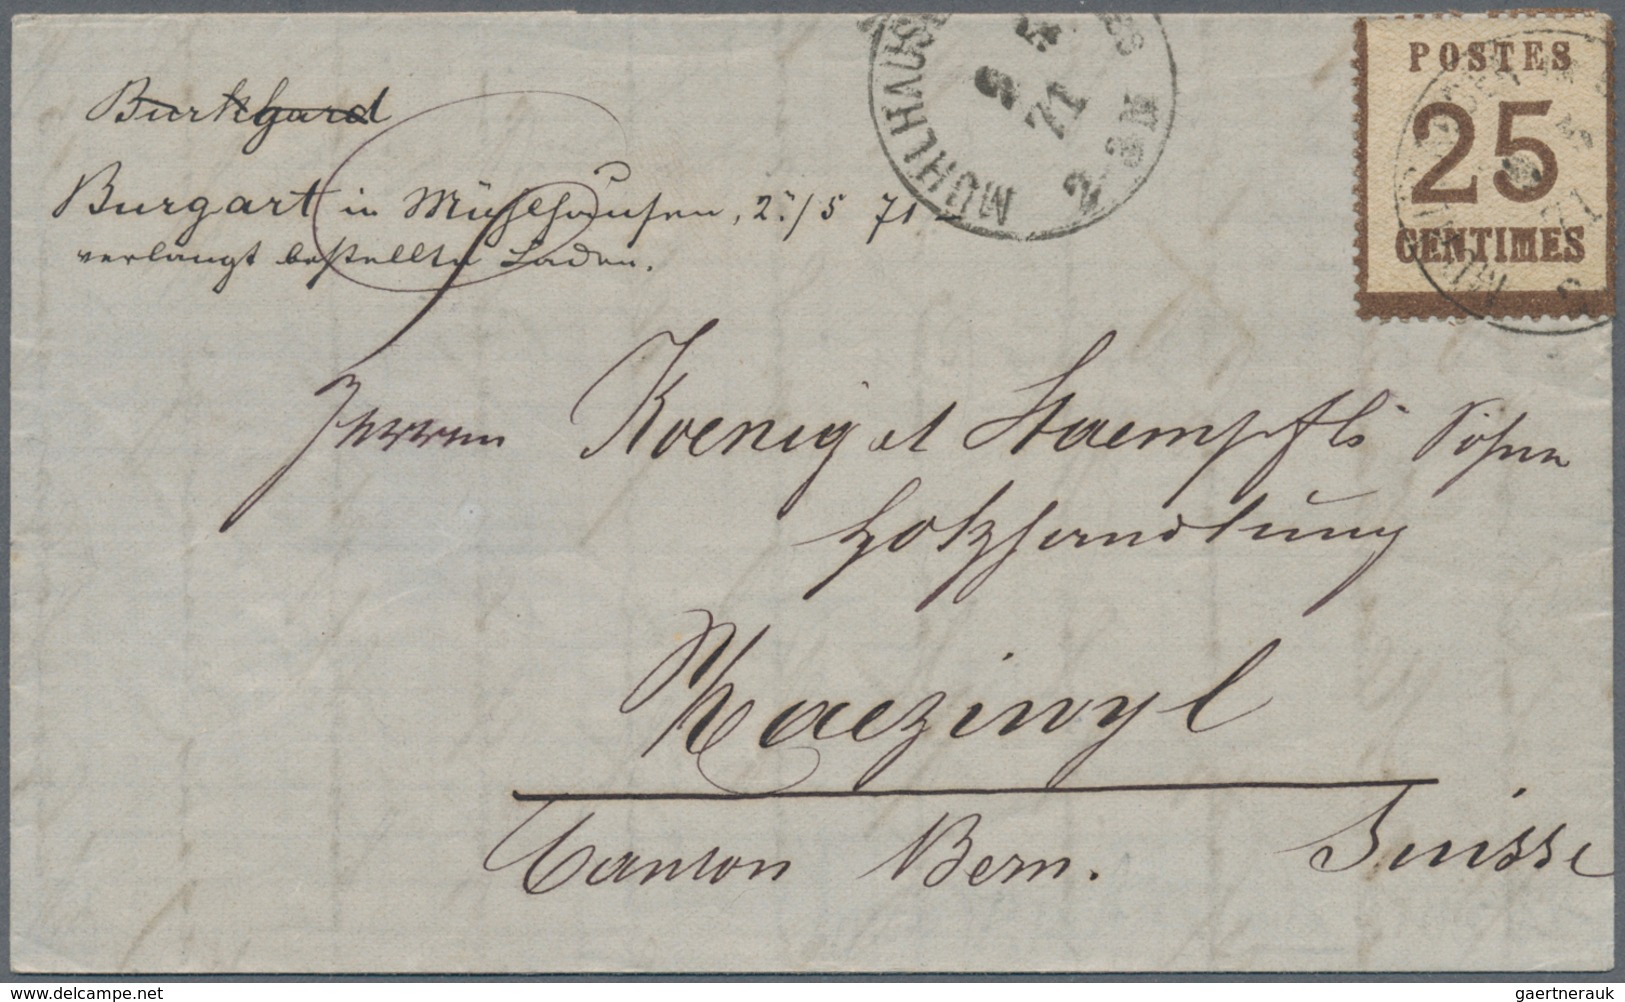 Burkhard
Burgart in Mühlhausen, 2./5 71
verlangt bestellte Laden.
MÜHLHAUSE
2 5
71
2-3N
POSTES
25
CENTIMES
71
Herren Koenig et Staempfli Söhne
Holzhandlung
Canton Bern. Suisse
delcampe.net
gaertnerauk